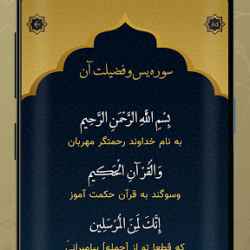 سوره یس و فضیلت آن
بِسْمِ اللَّهِ الرَّحْمَنِ الرَّحِيمِ
به نام خداوند رحمتگر مهربان
وَالْقُرْآنِ الْحَكِيمِ
وسوگند به قرآن حکمت آموز
إِنَّكَ لَمِنَ الْمُرْسَلِينَ
که قطعا تو از [جمله] پیامبرانی